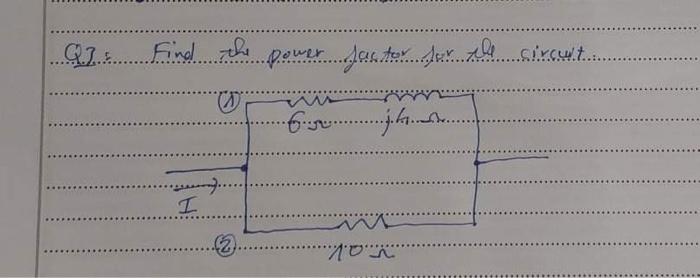 Q7: Find the power factor for the circuit.
①
6Ω j4Ω
I
②
10Ω